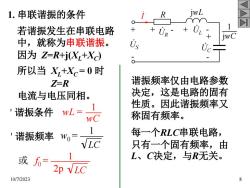 1. 串联谐振的条件
若谐振发生在串联电路
中，就称为串联谐振。
因为 Z=R+j(X_L+X_C)
所以当 X_L+X_C = 0 时
Z=R
电流与电压同相。
'谐振条件 wL = 1/wC
'谐振频率 w₀ = 1/√LC
或 f₀ = 1/2p√LC
İ R jwL
+ + U̇_R - + U̇_L - +
U̇_S U̇_C 1/jwC
- -
谐振频率仅由电路参数
决定，这是电路的固有
性质。因此谐振频率又
称固有频率。
每一个RLC串联电路，
只有一个固有频率，由
L、C决定，与R无关。
10/7/2023 8